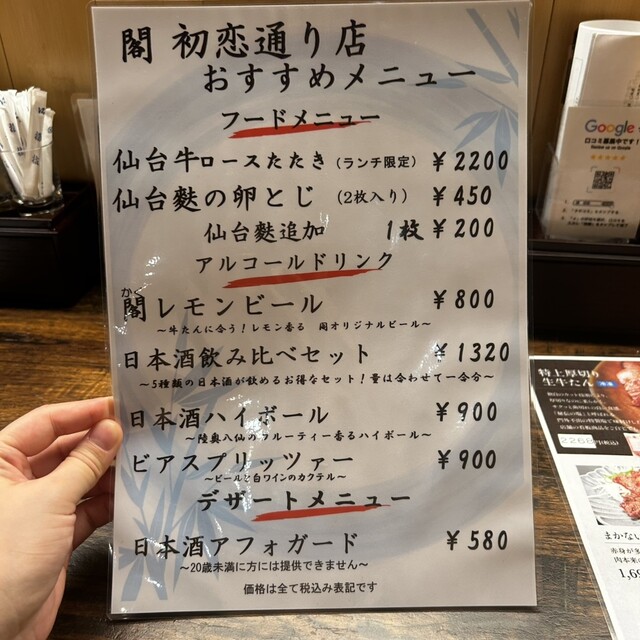 閣 初恋通り店
おすすめメニュー
フードメニュー
仙台牛ロースたたき(ランチ限定) ¥2200
仙台麩の卵とじ (2枚入り) ¥450
仙台麩追加 1枚¥200
アルコールドリンク
かく
閣レモンビール ¥800
〜牛たんに合う!レモン香る 閣オリジナルビール〜
日本酒飲み比べセット ¥1320
〜5種類の日本酒が飲めるお得なセット!量は合わせて一合分〜
日本酒ハイボール ¥900
〜陸奥八仙のフルーティー香るハイボール〜
ビアスプリッツァー ¥900
〜ビールと白ワインのカクテル〜
デザートメニュー
日本酒アフォガード ¥580
〜20歳未満に方には提供できません〜
価格は全て税込み表記です
Google
口コミ募集中です!
特上厚切り
生牛たん
まかない